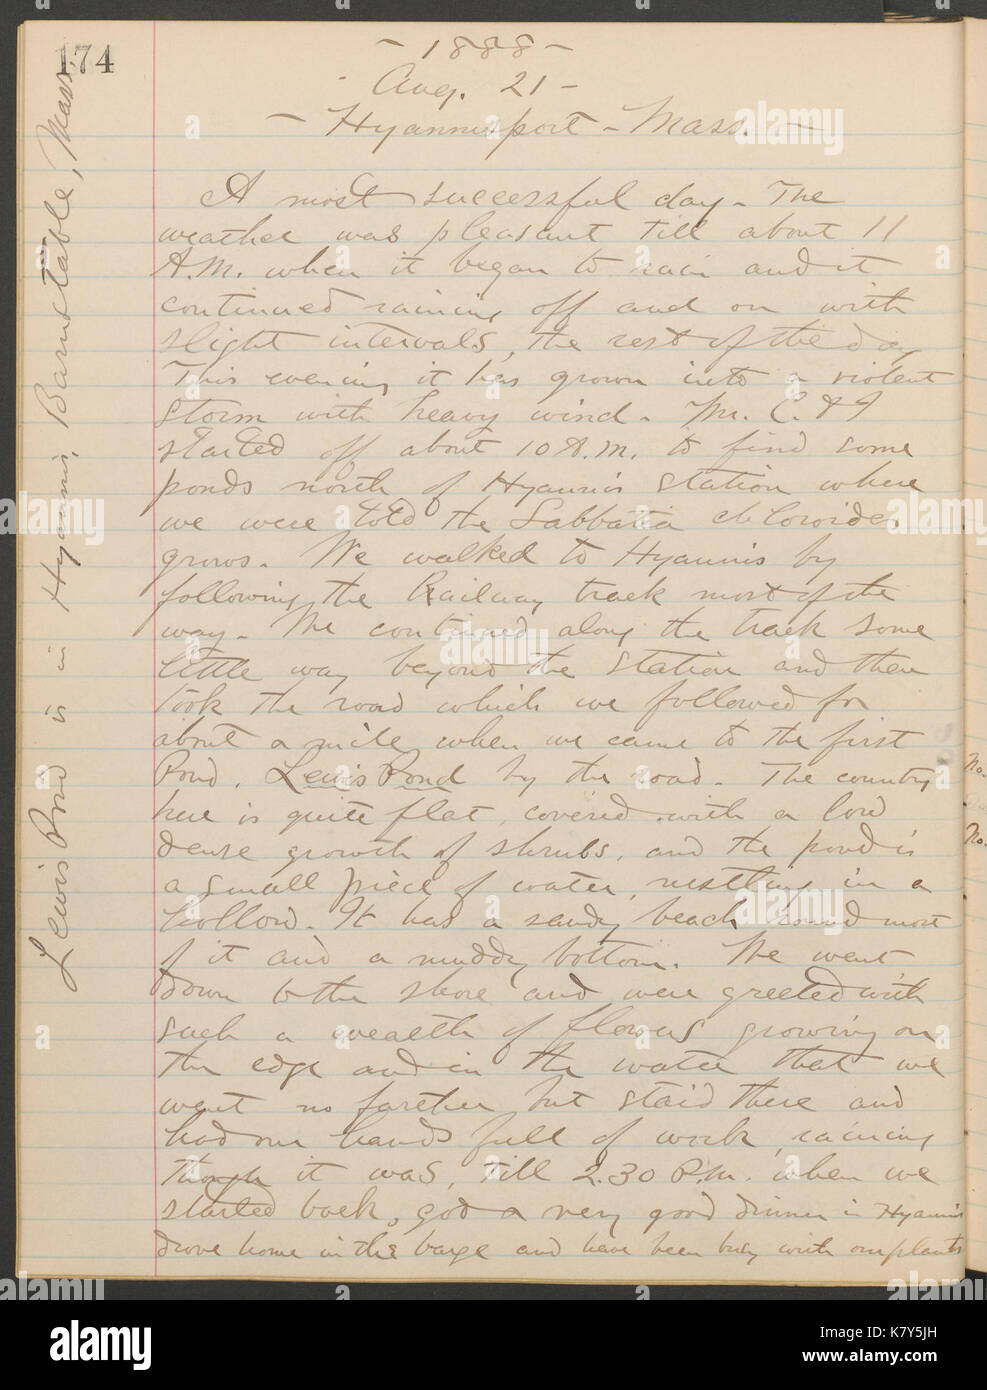 174
- 1888 -
Aug. 21 -
- Hyannisport - Mass. -
A most successful day. The
weather was pleasant till about 11
A.M. when it began to rain and it
continued raining off and on with
slight intervals, the rest of the day
This evening it has grown into a violent
storm with heavy wind. Mr. C. & I
started off about 10 A.M. to find some
ponds north of Hyannis station where
we were told the Sabbatia chloroides
grows. We walked to Hyannis by
following the Railway track most of the
way. We continued along the track some
little way beyond the station and then
took the road which we followed for
about a mile, when we came to the first
Pond, Lewis Pond by the road. The country
here is quite flat, covered with a low
dense growth of shrubs, and the pond is
a small piece of water, nestling in a
hollow. It has a sandy beach round most
of it and a muddy bottom. We went
down to the shore and were greeted with
such a wealth of flowers growing on
the edge and in the water that we
went no farther but staid there and
had our hands full of work, raining
though it was, till 2.30 P.M. when we
started back, got a very good dinner in Hyannis
drove home in the barge and have been busy with our plants
Lewis Pond is in Hyannis, Barnstable, Mass.
No.
No.
alamy
Image ID: K7Y5JH
www.alamy.com